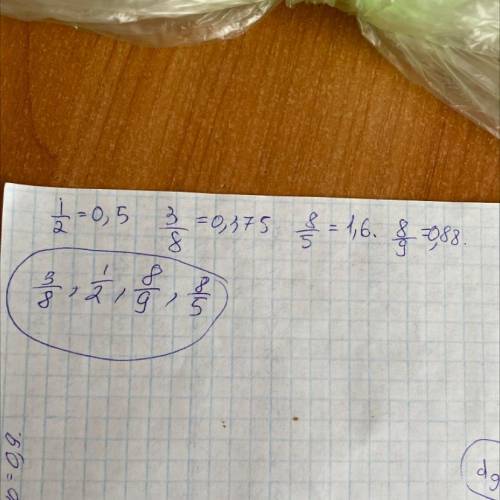 1/2 = 0,5 3/8 = 0,375 8/5 = 1,6. 8/9 = 0,88.
3/8, 1/2, 8/9, 8/5
= 0,9.